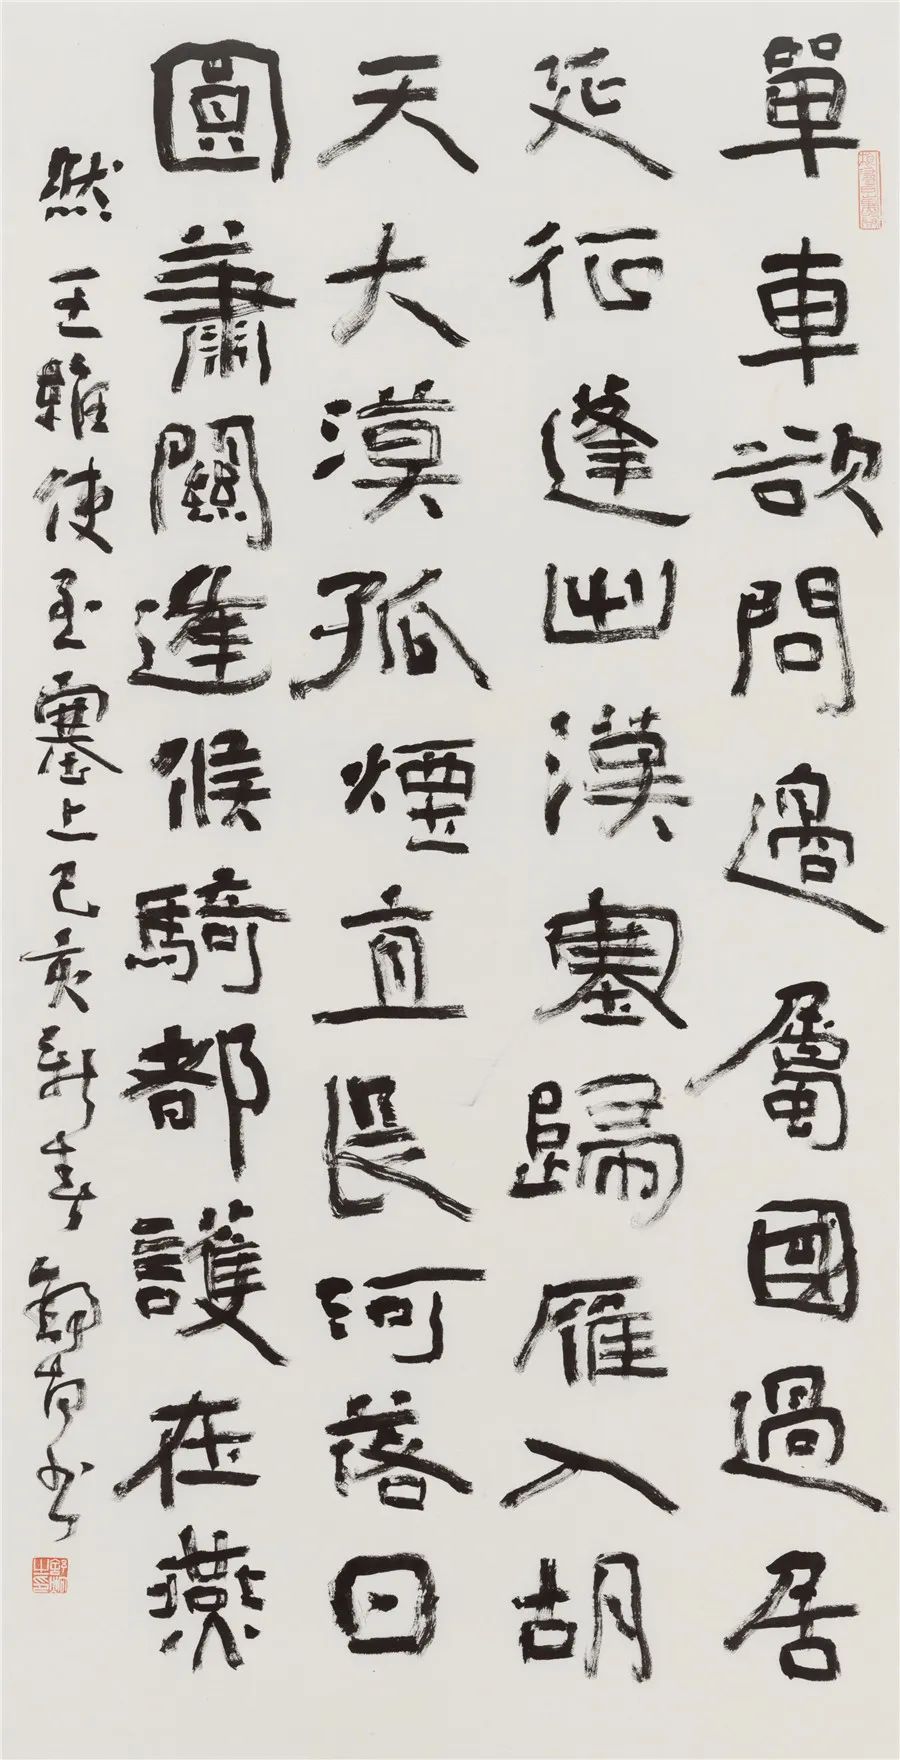 單車欲問邊屬國過居
延征蓬出漢塞歸雁入胡
天大漠孤煙直長河落日
圓蕭關逢候騎都護在燕
然 王維使至塞上己亥新春舒書